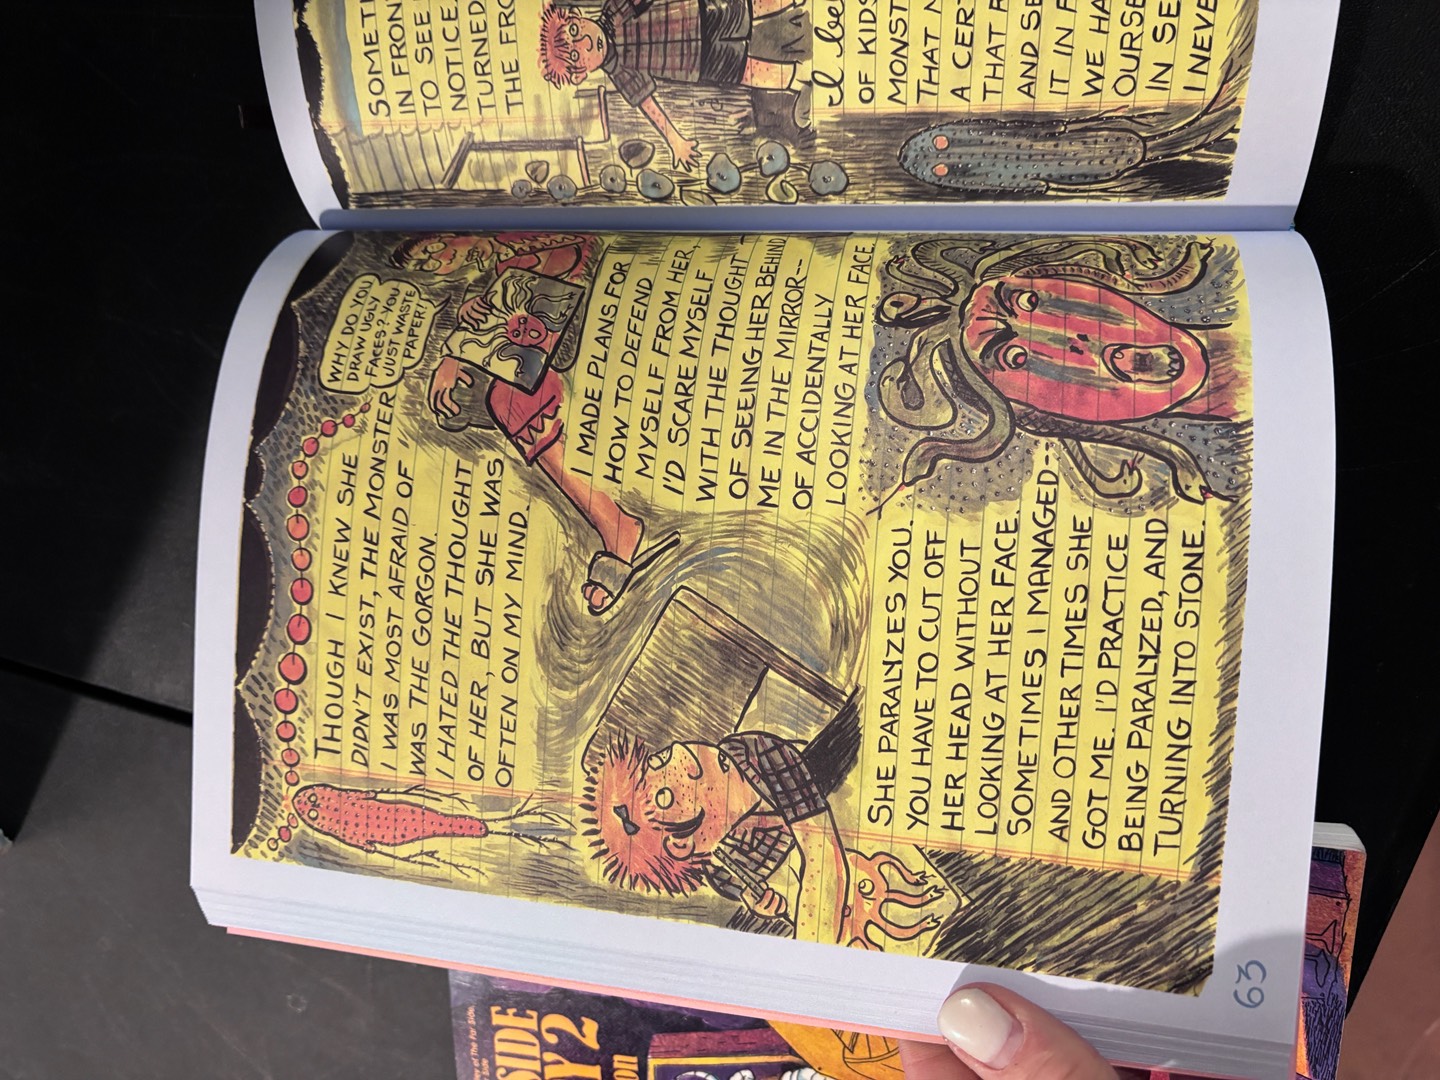 SOMETI
IN FRON
TO SEE
NOTICE.
TURNED
THE FRO
I bel
OF KIDS
MONST
THAT
A CERT
THAT
AND SE
IT IN
WE HA
OURSE
IN SE
I NEVE
WHY DO YOU
DRAW UGLY
FACES? YOU
JUST WASTE
PAPER!
THOUGH I KNEW SHE
DIDN'T EXIST, THE MONSTER
I WAS MOST AFRAID OF
WAS THE GORGON.
I HATED THE THOUGHT
OF HER, BUT SHE WAS
OFTEN ON MY MIND.
I MADE PLANS FOR
HOW TO DEFEND
MYSELF FROM HER,
I'D SCARE MYSELF
WITH THE THOUGHT—
OF SEEING HER BEHIND
ME IN THE MIRROR--
OF ACCIDENTALLY
LOOKING AT HER FACE.
SHE PARALYZES YOU.
YOU HAVE TO CUT OFF
HER HEAD WITHOUT
LOOKING AT HER FACE.
SOMETIMES I MANAGED--
AND OTHER TIMES SHE
GOT ME. I'D PRACTICE
BEING PARALYZED, AND
TURNING INTO STONE.
63
SIDE
Y 2
on